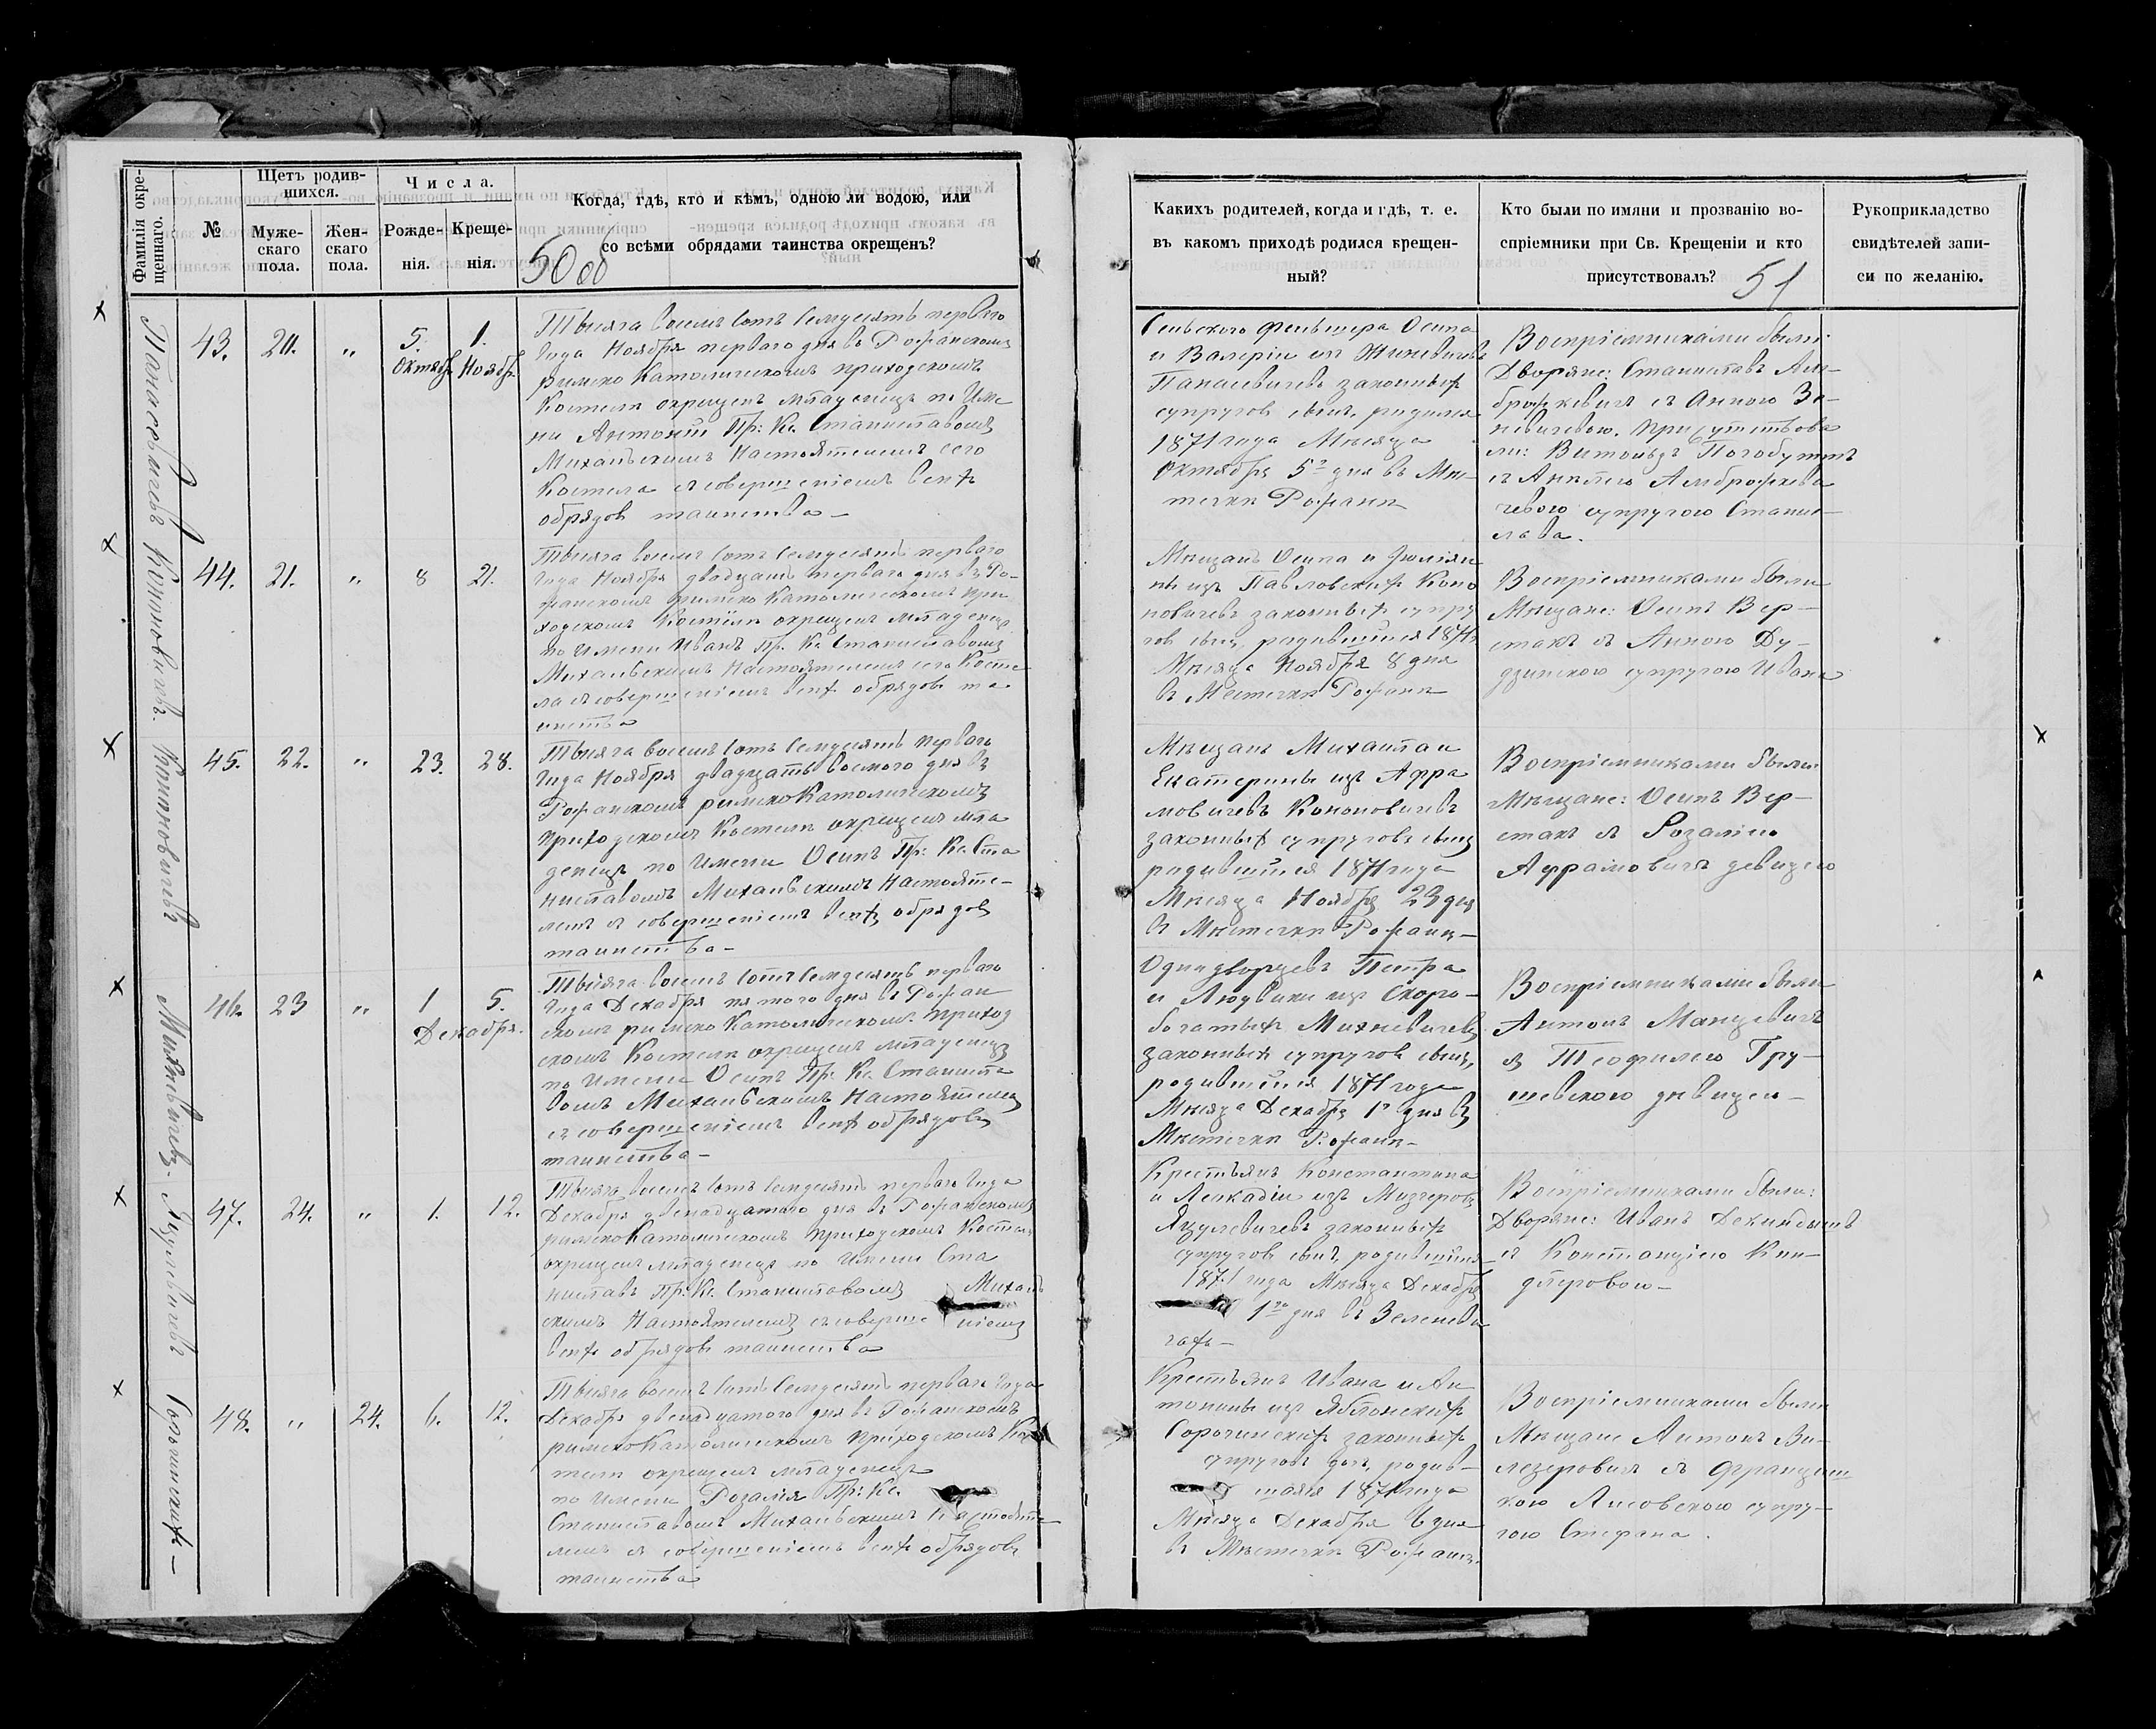 Фамилія окрещеннаго.
№
Щетъ родившихся.
Мужескаго пола.
Женскаго пола.
Числа.
Рожденія.
Крещенія.
Когда, гдѣ, кто и кѣмъ, одною ли водою, или
со всѣми обрядами таинства окрещенъ?
50 об
Панасевичъ
43.
20.
"
5. Октябр.
1. Ноябр.
Тысяча восемъ сотъ семдесятъ перваго
года Ноября перваго дня въ Рожанскомъ
римско Католическомъ приходскомъ
Костелѣ окрещенъ младенецъ по Име
ни Антоній Пр: Кс. Станиславомъ
Михальскимъ Настоятелемъ сего
Костела съ совершеніемъ всѣхъ
обрядов таинства —
Кононовичевъ.
44.
21.
"
8
21.
Тысяча восемъ сотъ семдесятъ перваго
года Ноября двадцать перваго дня въ Ро-
жанскомъ римско Католическомъ при
ходскомъ Костелѣ окрещенъ младенецъ
по Имени Иванъ Пр. Кс. Станиславомъ
Михальскимъ Настоятелемъ сего Косте
ла съ совершеніемъ всѣхъ обрядовъ та
инства
Кононовичевъ
45.
22.
"
23.
28.
Тысяча восемъ сотъ семдесятъ перваго
года Ноября двадцать восмого дня въ
Рожанскомъ римско Католическомъ
приходскомъ Костелѣ окрещенъ мла
денецъ по Имени Осипъ Пр: Кс. Ста
ниславомъ Михальскимъ Настояте-
лемъ съ совершеніемъ всѣхъ обрядовъ
таинства —
Михневичевъ.
46.
23
"
1
5.
Декабря.
Тысяча восемъ сотъ семдесятъ перваго
года Декабря пятого дня въ Рожан
скомъ римско Католическомъ приход
скомъ Костелѣ окрещенъ младенецъ
по Имени Осипъ Пр. Кс. Станисла
вомъ Михальскимъ Настоятелемъ
съ совершеніемъ всѣхъ обрядовъ
таинства —
Яцулевичевъ
47.
24.
"
1.
12.
Тысяча восемъ сотъ семдесятъ перваго года
Декабря двенадцатого дня въ Рожанскомъ
римско Католическомъ приходскомъ Костелѣ
окрещенъ младенецъ по Имени Ста
ниславъ Пр: Кс. Станиславомъ Михаль
скимъ Настоятелемъ съ соверше ніемъ
всѣхъ обрядовъ таинства
Сорочинскихъ —
48.
"
24.
6.
12.
Тысяча восемъ сотъ семдесятъ перваго года
Декабря двенадцатого дня въ Рожанскомъ
римско Католическомъ приходскомъ Кос
телѣ окрещенъ младенецъ
по Имени Розалія Пр: Кс.
Станиславомъ Михальскимъ Настояте
лемъ съ совершеніемъ всѣхъ обрядовъ
таинства
Какихъ родителей, когда и гдѣ, т. е.
въ какомъ приходѣ родился крещен-
ный?
Кто были по имяни и прозванію во-
спріемники при Св. Крещеніи и кто
присутствовалъ?
51
Рукоприкладство
свидѣтелей запи-
си по желанію.
Сельского Фельшера Осипа
и Валеріи изъ
Панасевичевъ законныхъ
супругов сынъ, родился
1871 года Мѣсяца
Октября 5го дня въ Мѣ-
стечкѣ Рожанѣ
Воспріемниками были:
Дворяне: Станиславъ Ам-
брожевичъ съ Анною Зе-
невичевою. Присутствова
ли:
съ Амброжеви
чевою супругою Станис-
лава.
Мѣщанъ Осипа и Юліан
ны изъ Павловскихъ Коно
новичевъ законныхъ супру
гов сынъ, родившійся 1871 г.
Мѣсяца Ноября 8 дня
въ Местечкѣ Рожанѣ
Воспріемниками были
Мѣщане: Осипъ Вер-
стакъ съ Анною Ду-
дзинскою супругою Ивана
Мѣщанъ Михаила и
Екатерины изъ Абра
мовичевъ Кононовичевъ
законныхъ супруговъ сынъ
родившійся 1871 года
Мѣсяца Ноября 23 дня
въ Мѣстечкѣ Рожанѣ —
Воспріемниками были
Мѣщане: Осипъ Вер-
стакъ съ Розаліею
Абрамовичъ девицею
Однодворцевъ Петра
и Людвики изъ Скоро-
богатыхъ Михневичевъ
законныхъ супругов сынъ,
родившійся 1871 года
Мѣсяца Декабря 1го дня въ
Мѣстечкѣ Рожанѣ —
Воспріемниками были
Антонъ Манцевичъ
съ Теофилею Гру-
шевскою дѣвицею —
Крестьянъ Константина
и Леокадіи изъ Мизгеровъ
Яцулевичевъ законныхъ
супругов сынъ, родившійся
1871 года Мѣсяца Декабря
1го дня въ Зеленеви
чахъ —
Воспріемниками были:
Дворяне: Иванъ
съ Констанціею
Крестьянъ Ивана и Ан
тонины изъ Яблонскихъ
Сорочинскихъ законныхъ
супругов дочь, родив-
шаяся 1871 года
Мѣсяца Декабря 6 дня
въ Мѣстечкѣ Рожанѣ.
Воспріемниками были
Мѣщане Антонъ Ви-
лезеровичъ съ Францыш
кою Лисовскою супру-
гою Стефана.